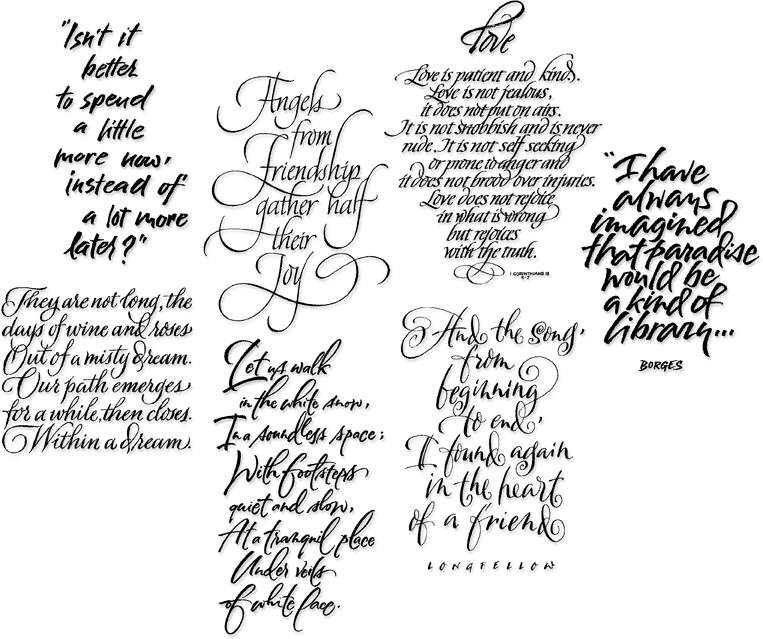 "Isn't it
better
to spend
a little
more now,
instead of
a lot more
later?"
They are not long, the
days of wine and roses
Out of a misty dream.
Our path emerges
for a while, then closes.
Within a dream.
Angels
from
Friendship
gather half
their
Joy
Let us walk
in the white snow,
In a soundless space;
With footsteps
quiet and slow,
At a tranquil place
Under veils
of white lace.
Love
Love is patient and kind.
Love is not jealous,
it does not put on airs.
It is not snobbish and is never
rude. It is not self seeking
or prone to anger and
it does not brood over injuries.
Love does not rejoice
in what is wrong
but rejoices
with the truth.
I CORINTHIANS 13
4-7
And the song,
from
beginning
to end,
I found again
in the heart
of a friend
LONGFELLOW
"I have
always
imagined
that paradise
would be
a kind of
library...
BORGES